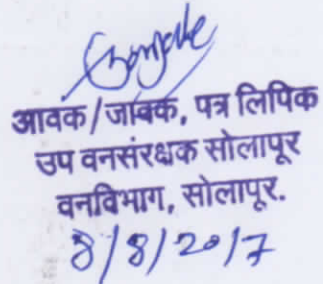 आवक/जावक, पत्र लिपिक
उप वनसंरक्षक सोलापूर
वनविभाग, सोलापूर.
8/8/2017